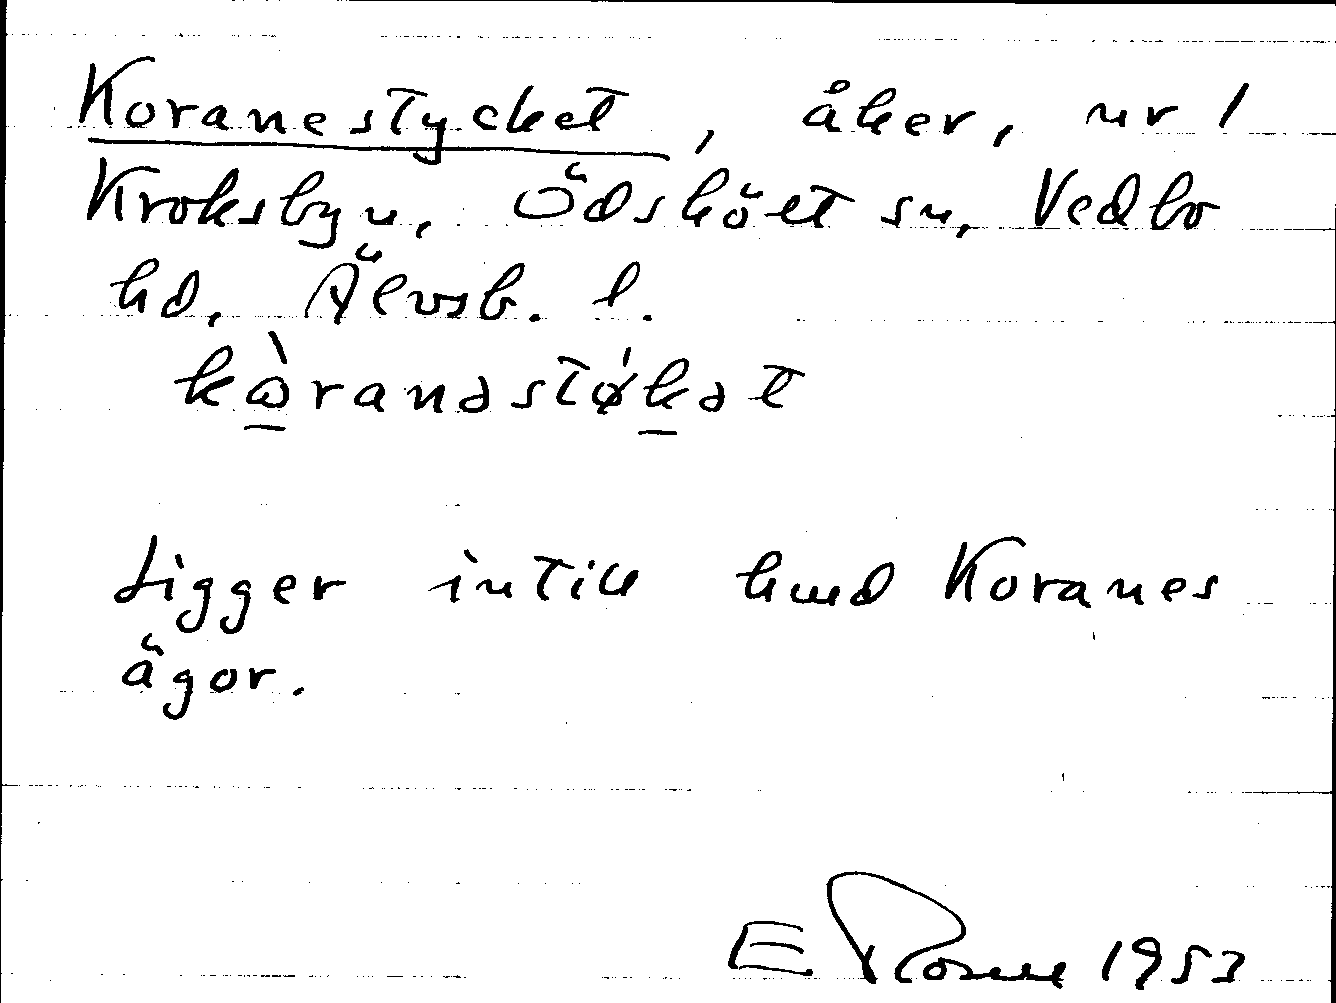 Koranestycket, åker, nr 1
Kroksbyn, Ödskölt sn, Vedbo
hd, Älvsb. l.
kòranəstǿkət
Ligger intill hmd Koranes
ägor.
E 1953